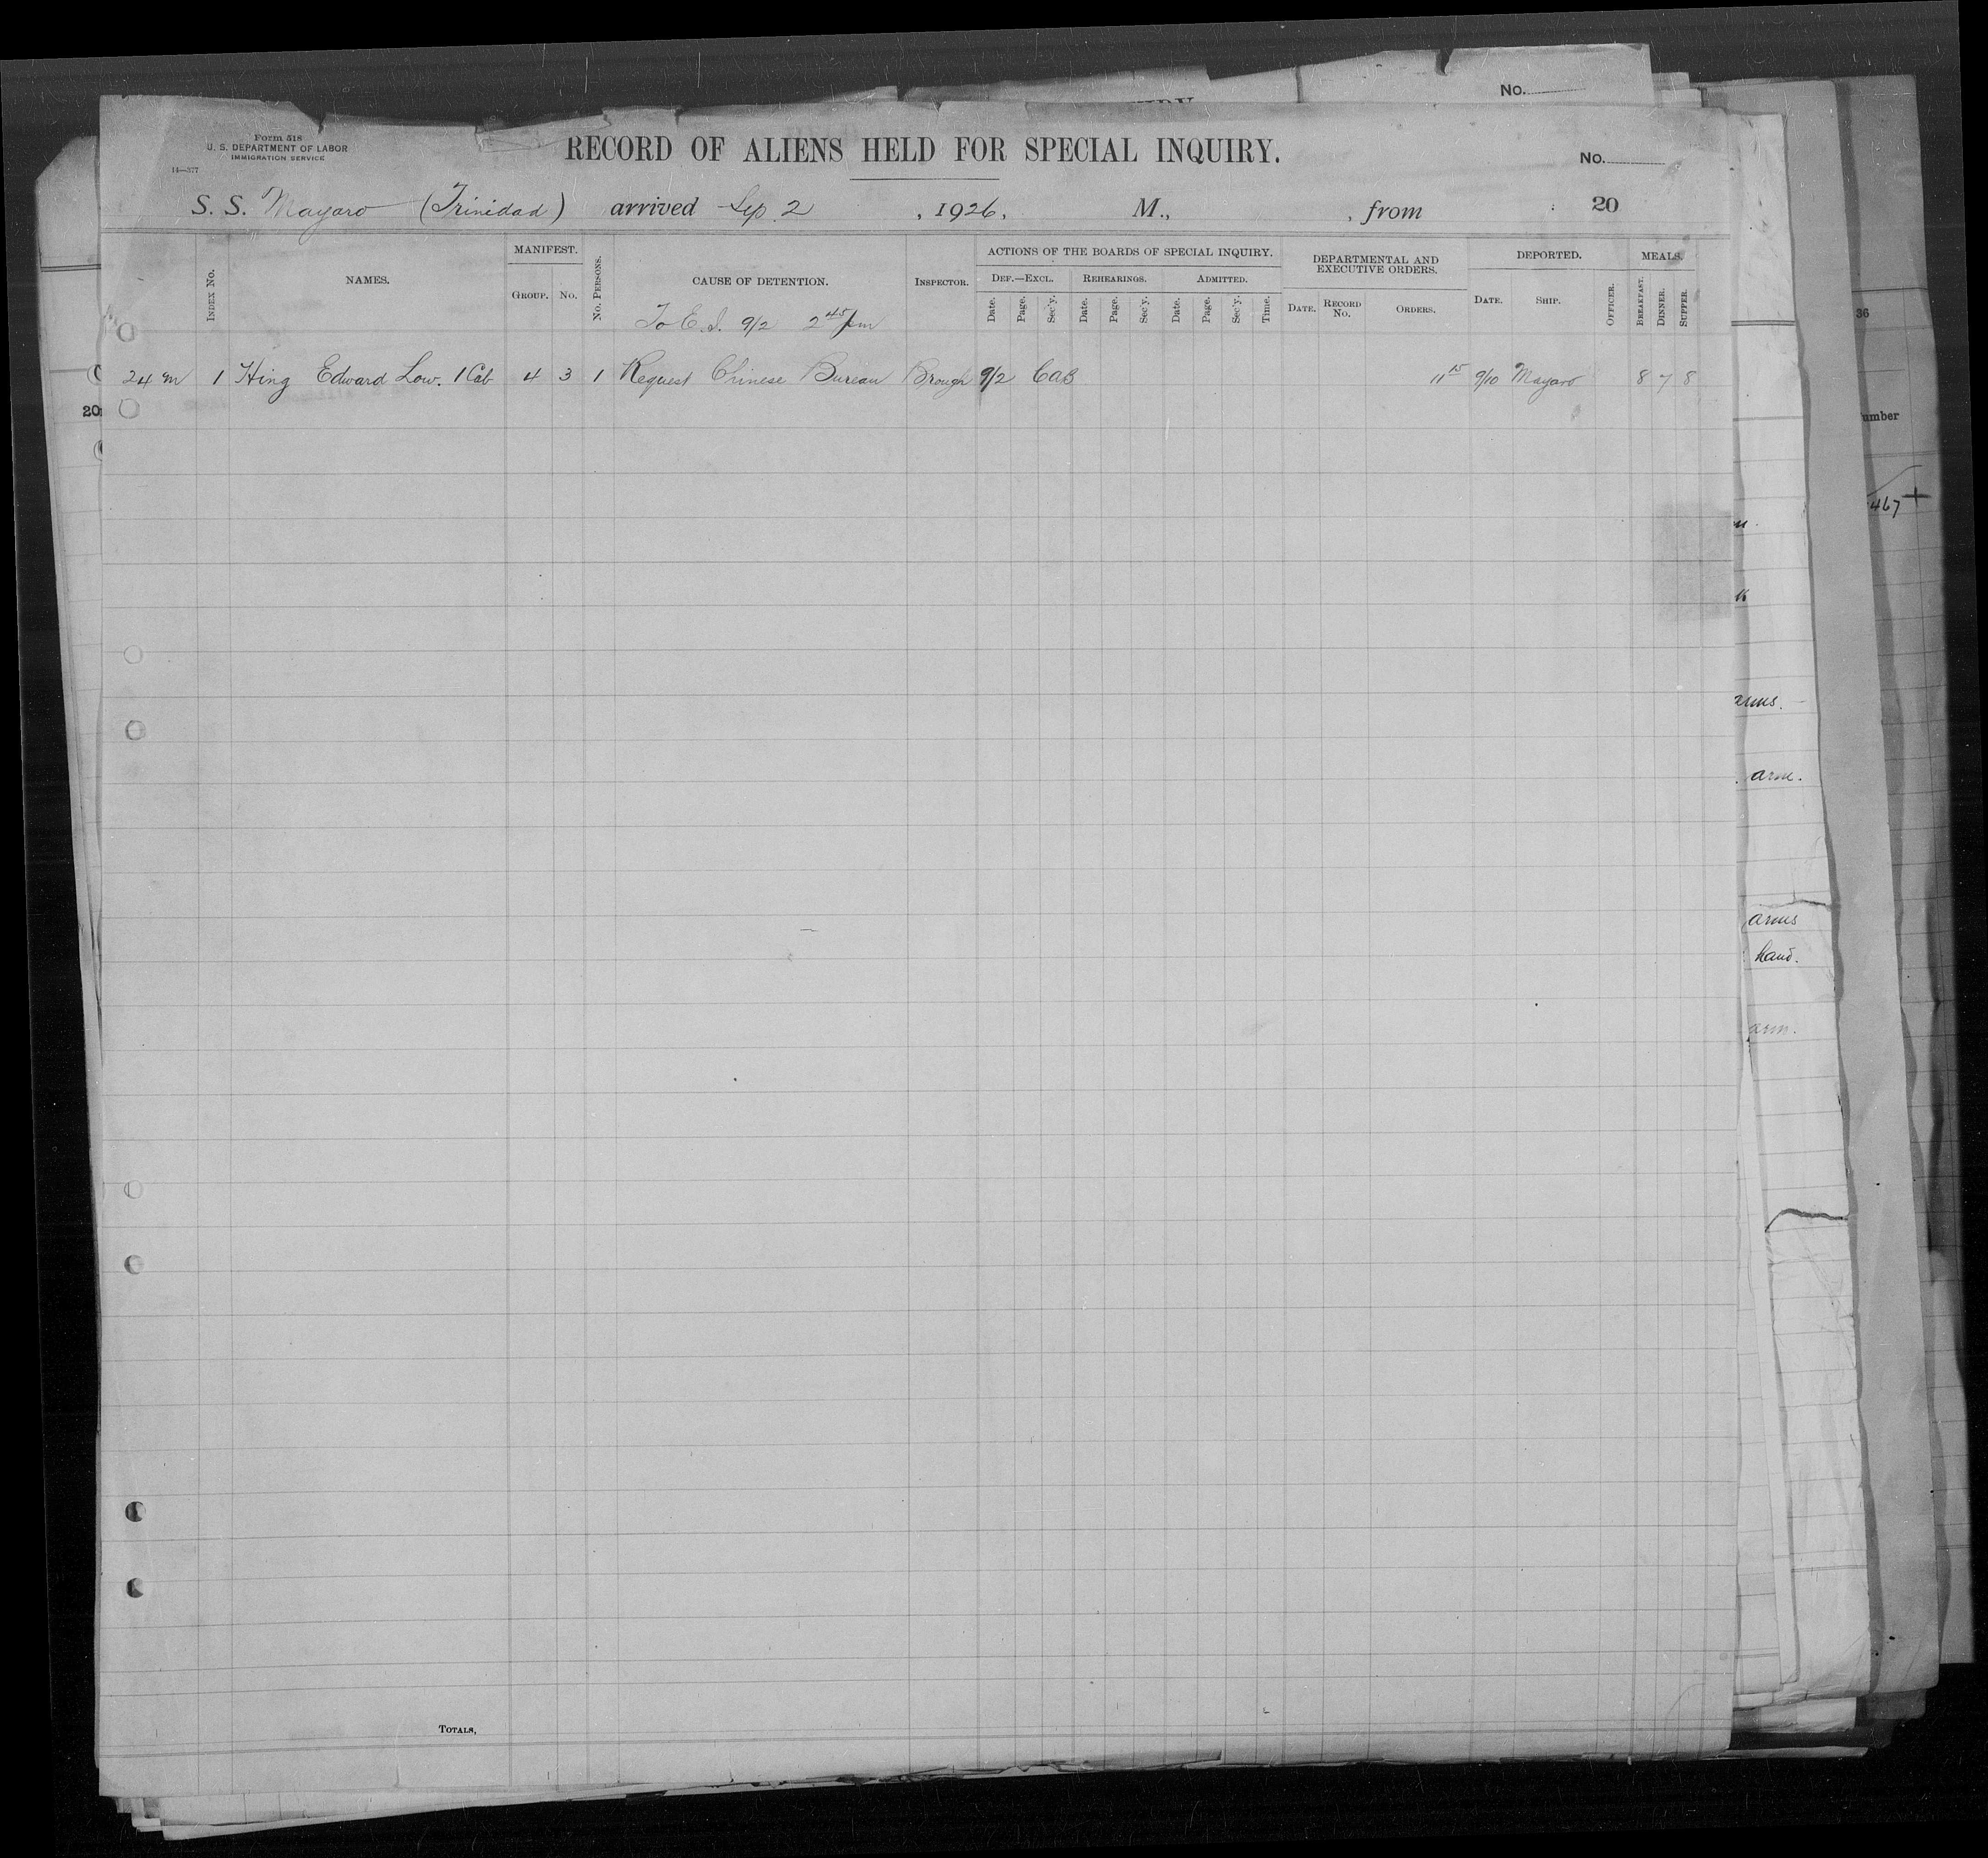 No.
Form 518
U. S. DEPARTMENT OF LABOR
IMMIGRATION SERVICE
14—377
RECORD OF ALIENS HELD FOR SPECIAL INQUIRY.
No.
S. S. Mayaro (Trinidad) arrived Sep. 2, 1926, M., , from 20
INDEX NO.
NAMES.
MANIFEST.
GROUP. NO.
NO. PERSONS.
CAUSE OF DETENTION.
INSPECTOR.
ACTIONS OF THE BOARDS OF SPECIAL INQUIRY.
DEF.—EXCL. REHEARINGS. ADMITTED.
Date. Page. Sec'y. Date. Page. Sec'y. Date. Page. Sec'y. Time.
DEPARTMENTAL AND
EXECUTIVE ORDERS.
DATE. RECORD No. ORDERS.
DEPORTED.
DATE. SHIP. OFFICER.
MEALS.
BREAKFAST. DINNER. SUPPER.
To E. I. 9/2 2 45 pm
24 m 1 Hing Edward Low. 1 Cab 4 3 1 Request Chinese Bureau Brough 9/2 CAB 11 15 9/10 Mayaro 8 7 8
TOTALS,
36
umber
467 +
arms.
arm.
arms
hand.
arm.